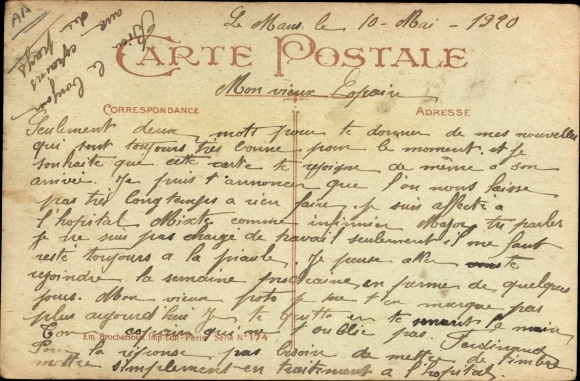 Le Mans, le 10 - Mai - 1920
Bien le bonjour
aux copains
du pays
CARTE POSTALE
Mon vieux Copain
CORRESPONDANCE
ADRESSE
Seulement deux mots pour te donner de mes nouvelles
qui sont toujours très bonne pour le moment. et je
souhaite que cette carte te rejoigne de même a son
arrivée. Je puis t'annoncer que l'on nous laisse
pas très longtemps a rien faire. je suis affecté a
l'hopital Mixte comme infirmier Major, tu parles
je ne suis pas chargé de travail seulement il me faut
resté toujours a la piaule. Je pense aller te
rejoindre la semaine prochaine, en perme de quelques
jours. Mon vieux poto je ne t'en marque pas
plus aujourd'hui je te quitte en te serrant la main
Ton copain qui ne t'oublie pas. Ferdinand
Em. Brocherioux, Imp-Edit - Paris Série N° 174
Pour la réponse pas besoin de mettre de timbre
mettre simplement en traitement a l'hopital.